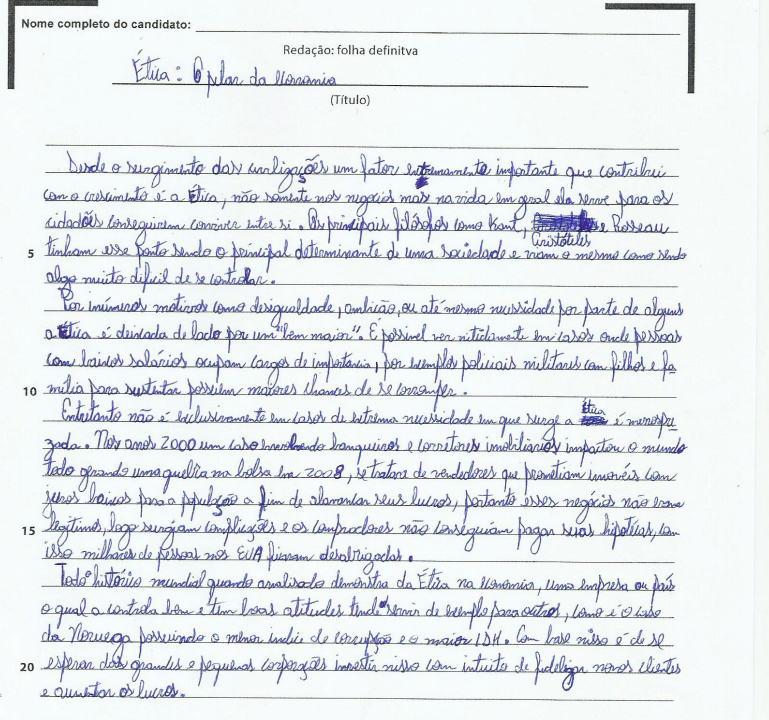 Nome completo do candidato:
Redação: folha definitva
Ética: O pilar da economia
(Título)
Desde o surgimento das civilizações um fator extremamente importante que contribui
com o crescimento é a Ética, não somente nos negócios mas na vida em geral ela serve para os
cidadões conseguirem conviver entre si. Os principais filósofos como Kant, Aristóteles e Rosseau
5 tinham esse ponto sendo o principal determinante de uma sociedade e viam o mesmo como sendo
algo muito dificil de se controlar.
Por inúmeros motivos como desigualdade, ambição, ou até mesmo necessidade por parte de alguns
a Ética é deixada de lado por um "bem maior". É possivel ver nitidamente em casos onde pessoas
com baixos salários ocupam cargos de importancia, por exemplos policiais militares com filhos e fa
10 mília para sustentar possuem maiores chances de se corromper.
Entretanto não é exclusivamente em casos de extrema necessidade em que surge a ética é menospre
zada. Nos anos 2000 um caso envolvendo banqueiros e corretores imobiliários impactou o mundo
todo gerando uma quebra na bolsa em 2008, se tratava de vendedores que prometiam imovéis com
juros baixos para a população a fim de alavancar seus lucros, portanto esses negócios não eram
15 legítimos, logo surgiam complicações e os compradores não conseguiam pagar suas hipotécas, com
isso milhares de pessoas nos EUA ficaram desabrigadas.
Todo histórico mundial quando analisado demonstra da Ética na economia, uma empresa ou país
o qual a controla bem e tem boas atitudes tende a servir de exemplo para outros, como é o caso
da Noruega possuindo o menor indice de corrupção e o maior IDH. Com base nisso é de se
20 esperar das grandes e pequenas corporções investir nisso com intuito de fidelizar novos clientes
e aumentar os lucros.